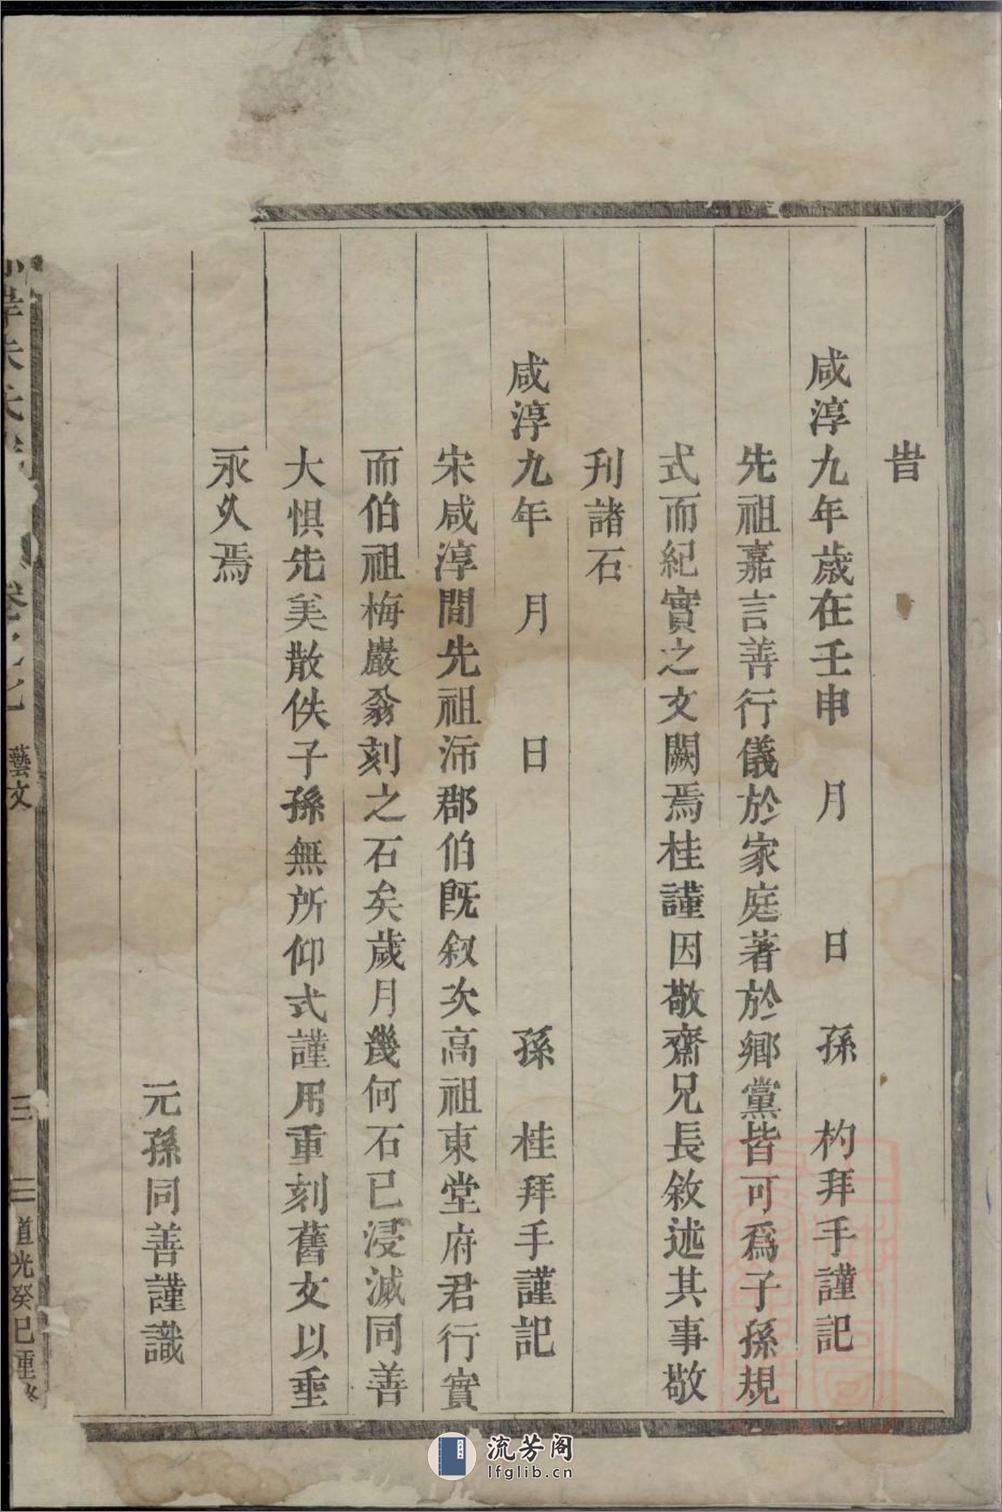 昔
咸淳九年歲在壬申　月　日　孫　杓拜手謹記
先祖嘉言善行儀於家庭著於鄉黨皆可爲子孫規
式而紀實之文闕焉桂謹因敬齋兄長敘述其事敬
刋諸石
咸淳九年　月　日　孫　桂拜手謹記
宋咸淳間先祖沛郡伯旣叙次高祖東堂府君行實
而伯祖梅巖翁刻之石矣歲月幾何石已浸滅同善
大惧先美散佚子孫無所仰式謹用重刻舊文以垂
永久焉
元孫同善謹識
朱氏
卷之七 藝文
三
三
道光癸巳重修
流芳阁
lfglib.cn